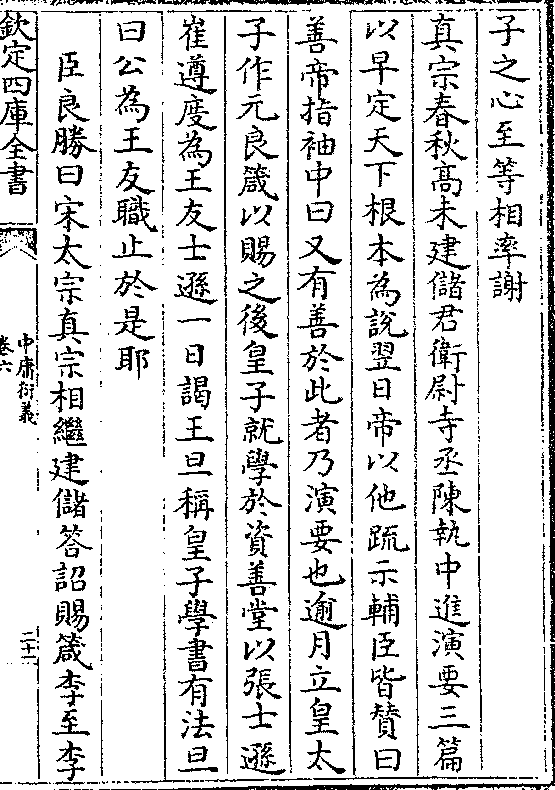 子之心至等相率謝
真宗春秋髙未建儲君衛尉寺丞陳執中進演要三篇
以早定天下根本為説翌日帝以他䟽示輔臣皆賛曰
善帝指袖中曰又有善於此者乃演要也逾月立皇太
子作元良箴以賜之後皇子就學於資善堂以張士遜
崔遵度為王友士遜一日謁王旦稱皇子學書有法旦
曰公為王友職止於是耶
臣良勝曰宋太宗真宗相繼建儲答詔賜箴李至李
欽定四庫全書
中庸衍義
卷六
二十一